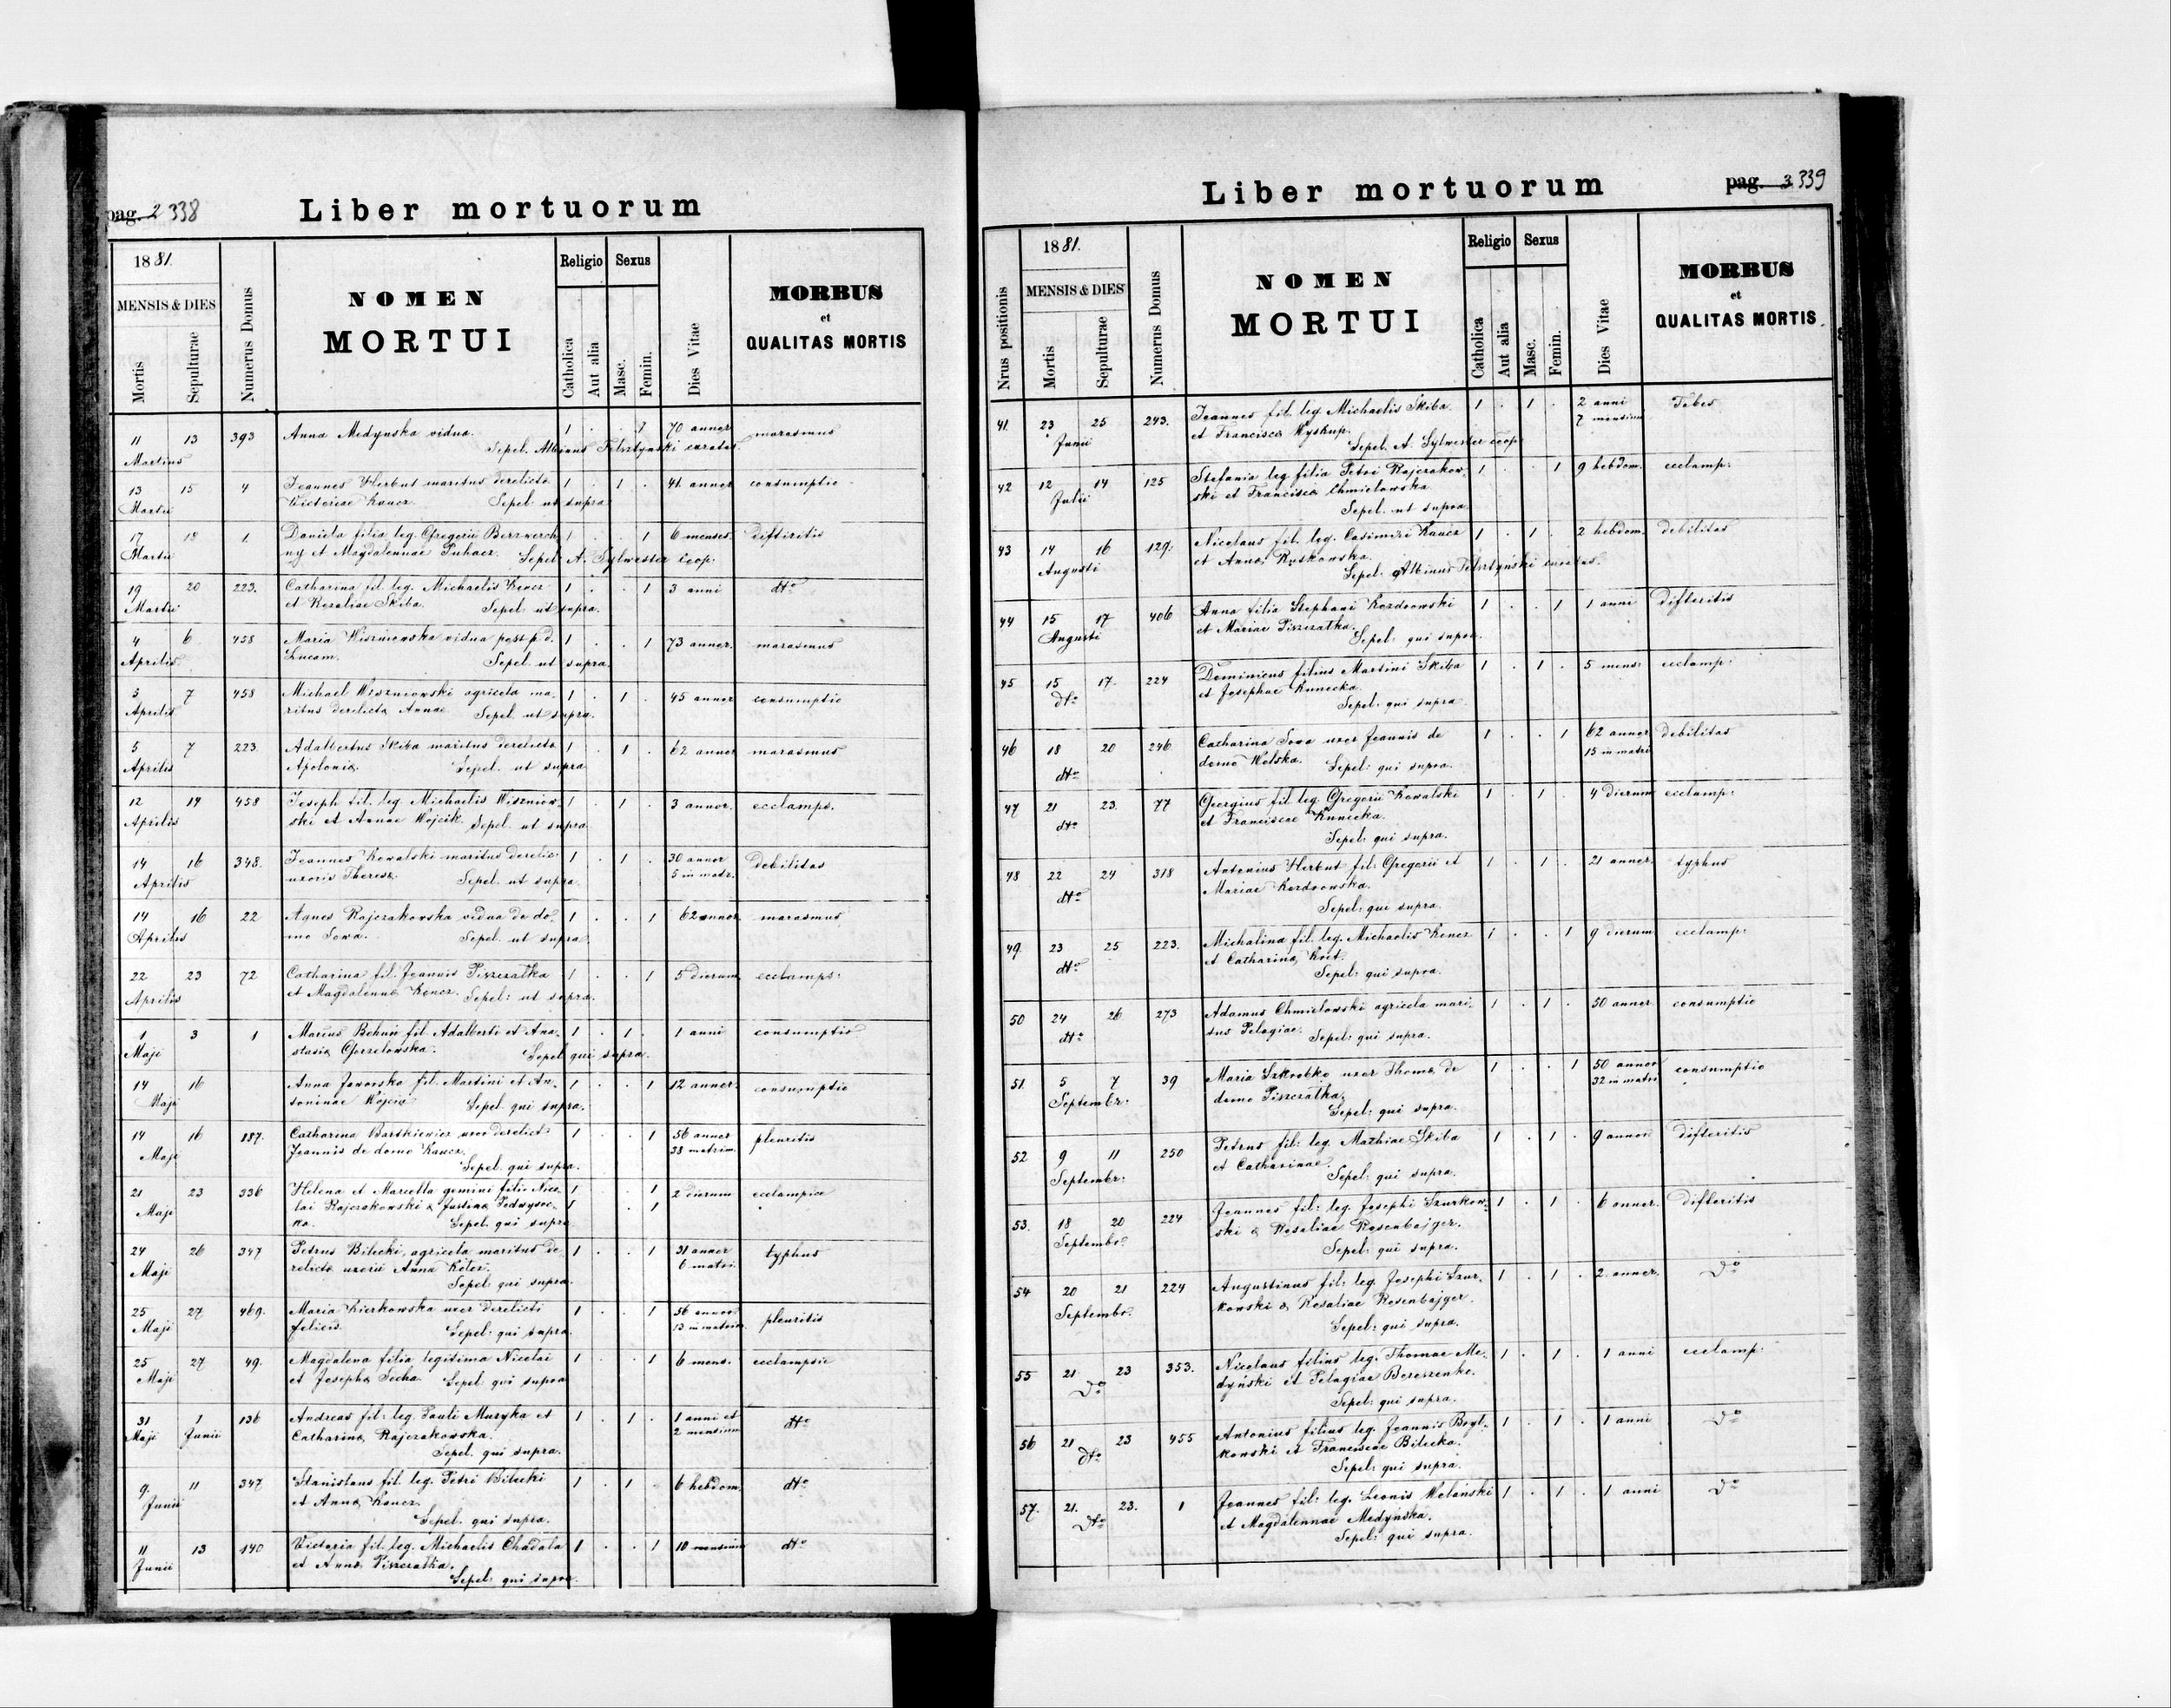 pag. 2 338
Liber mortuorum
1881.
MENSIS & DIES
Mortis
Sepulturae
Numerus Domus
NOMEN
MORTUI
Religio
Catholica
Aut alia
Sexus
Masc.
Femin.
Dies Vitae
MORBUS
et
QUALITAS MORTIS
11 13 393 Anna Medynska vidua. 1 . . 1 70 annor marasmus
Martius Sepel. Albinus Felsztynski curatus
13 15 4 Joannes Herbut maritus derelicta 1 . 1 . 41. annor consumptio
Martii Victoriae Kaucz Sepel ut supra
17 18 1. Daniela filia leg. Gregorii Bezzwerch 1 . . 1 6 menses. diftiritis
Martii ny et Magdalennae Puhacz. Sepel A. Sylwester Coop.
19 20 223. Catharina fil. leg. Michaelis Koncz 1 . . 1 3 anni dtto
Martii et Rozaliae Skiba. Sepel ut supra.
4 6 458 Maria Wiszniowska vidua post p. d. 1 . . 1 73 annor. marasmus
Aprilis Lucam. Sepel ut supra.
5 7 458 Michael Wiszniowski agricola ma- 1 . 1 . 45 annor consumptio
Aprilis ritus derelicta Annae Sepel. ut supra.
5 7 223 Adalbertus Skiba maritus derelicta 1 . 1 . 62 annor marasmus
Aprilis Apolonia. Sepel. ut supra
12 14 458 Joseph fil. leg. Michaelis Wiszniow- 1 . 1 . 3 annor. ecclamps.
Aprilis ski et Annae Wojcik. Sepel. ut supra
14 16 348. Joannes Kowalski maritus derelic- 1 . 1 . 30 annor debilitas
Aprilis uxoris Theresa. Sepel. ut supra. 5 in matr.
14 16 22 Agnes Rajczakowska vidua de do- 1 . . 1 62 annor marasmus
Aprilis mo Sowa. Sepel. ut supra.
22 23 72 Catharina fil. Joannis Piszczatka 1 . . 1 5 dierum ecclamps:
Aprilis et Magdalenna Koncz. Sepel: ut supra.
1 3 1 Marius Bohun fil. Adalberti et Ana- 1 . 1 . 1 anni consumptio
Maji stasia Gorzelowska. Sepel qui supra.
14 16 Anna Jaworska fil. Martini et An- 1 . . 1 12 annor. consumptio
Maji toninae Wojcik Sepel. qui supra.
14 16 187. Catharina Bartkiewicz uxor derelicti 1 . . 1 56 annor pleuritis
Maji Joannis de domo Kaucz. 38 matrim.
Sepel. qui supra.
21 23 336 Helena et Marcella gemini filii Nico- 1 1 2 dierum ecclampsia
Maji lai Rajczakowski & Justina Podwysoc- 1 1
ka. Sepel. qui supra
24 26 347 Petrus Bilecki, agricola maritus de- 1 . . 1 31 annor typhus
Maji relicta uxoris Anna Koter. 6 matri.
Sepel qui supra.
25 27 469. Maria Kierkowska uxor derelicti 1 . . 1 56 annor pleuritis
Maji felicis. Sepel: qui supra. 13 in matrim
25 27 49. Magdalena filia legitima Nicolai 1 . . 1 6 mens. ecclampsie
Maji et Josepha Socha. Sepel. qui supra
31 1 136 Andreas fil: leg. Pauli Muzyka et 1 . 1 . 1 anni et dtto
Maji Junii Catharina Rajczakowska. 2 mensium
Sepel. qui supra.
9. 11 347 Stanislaus fil. leg. Petri Bilecki 1 . 1 6 hebdom. dtto
Junii et Anna Kaucz.
Sepel. qui supra.
11 13 140 Victoria fil. leg. Michaelis Chadala 1 . . 1 10 mensium dtto
Junii et Anna Piszczatka.
Sepel: qui supra.
Liber mortuorum
pag. 3 339
Nrus positionis
1881.
MENSIS & DIES
Mortis
Sepulturae
Numerus Domus
NOMEN
MORTUI
Religio
Catholica
Aut alia
Sexus
Masc.
Femin.
Dies Vitae
MORBUS
et
QUALITAS MORTIS
41. 23 25 243. Joannes fil. leg. Michaelis Skiba 1 . 1 . 2 anni Tabes
Junii et Francisca Wyskup. 7 mensium
Sepel. A. Sylwester Coop
42 12 14 125 Stefania leg. filia Petri Rajczakow- 1 . . 1 9 hebdom. ecclamp:
Julii ski et Francisca Chmielowska.
Sepel. ut supra
43 14 16 129. Nicolaus fil. leg. Casimiri Kaucz 1 . 1 . 2 hebdom. debilitas
Augusti et Anna Ruskowska.
Sepel. Albinus Felsztyński curatus.
44 15 17 406 Anna filia Stephani Kozdrowski 1 . . 1 1 anni difteritis
Augusti et Mariae Piszczatka.
Sepel: qui supra.
45 15 17. 224 Dominicus filius Martini Skiba 1 . 1 . 5 mens: ecclamp:
dto et Josephae Kunecka.
Sepel: qui supra
46 18 20 246 Catharina Sowa uxor Joannis de 1 . . 1 62 annor debilitas
dtto domo Wolska. Sepel: qui supra. 15 in matri
47 21 23. 77 Georgius fil leg. Gregorii Kowalski 1 . 1 . 4 dierum ecclamp:
dtto et Franciscae Kunicka.
Sepel: qui supra.
48 22 24 318 Antonius Herbut fil: Gregorii et 1 . 1 . 21 annor. typhus
dtto Mariae Kozdrowska.
Sepel: qui supra.
49 23 25 223. Michalina fil. leg. Michaelis Koncz 1 . . 1 9 dierum ecclamp:
dtto et Catharina Król.
Sepel: qui supra.
50 24 26 273 Adamus Chmielowski agricola mari- 1 . 1 . 50 annor. consumptio
dtto tus Pelagiae. Sepel: qui supra.
51. 5 7 39 Maria Szkrobko uxor Thoma de 1 . . 1 50 annor consumptio
Septembr: domo Piszczatka. 32 in matri
Sepel: qui supra.
52 9 11 250 Petrus fil: leg. Mathiae Skiba 1 . 1 . 9 annor difteritis
Septembr: et Catharinae.
Sepel: qui supra.
53. 18 20 224 Joannes fil: leg. Josephi Szurkow- 1 . 1 . 6 annor. difteritis
Septembr. ski & Rosaliae Rosenbajger.
Sepel: qui supra.
54 20 21 224 Augustinus fil: leg. Josephi Szur- 1 . 1 . 2. annor. Do
Septembr. kowski & Rosaliae Rosenbajger.
Sepel: qui supra.
55 21. 23 353. Nicolaus filius leg. Thomae Me- 1 . 1 . 1 anni ecclamp:
Do dyński et Pelagiae Berezenko.
Sepel: qui supra.
56 21 23 455 Antonius filius leg. Joannis Brył- 1 . 1 . 1 anni Do
dtto kowski et Franciscae Bilecka.
Sepel: qui supra.
57. 21. 23. 1 Joannes fil: leg. Leonis Wolański 1 . 1 . 1 anni Do
Dtto et Magdalennae Medyńska.
Sepel: qui supra.